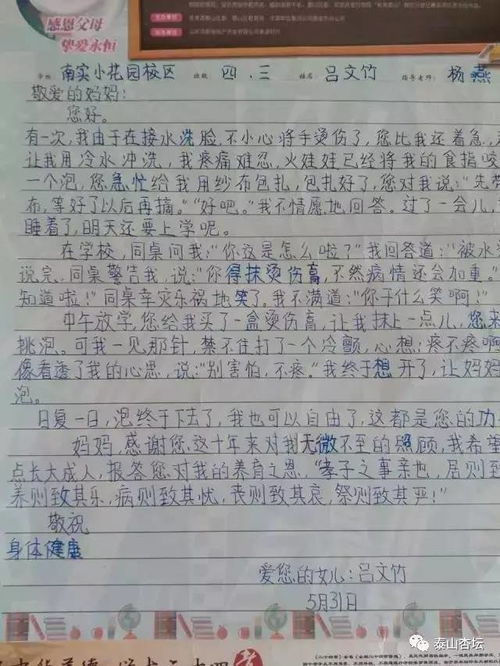 感恩父母
挚爱永恒
学校 南实小花园校区 班级 四.三 姓名 吕文竹 指导老师: 杨燕
敬爱的妈妈:
您好。
有一次,我由于在接水洗脸,不小心将手烫伤了,您比我还着急,
让我用冷水冲洗,我疼痛难忍,火娃娃已经将我的食指咬
一个泡,您急忙给我用纱布包扎,包扎好了,您对我说:“先
布,等好了以后再摘。”“好吧。”我不情愿地回答。过了一会儿,
睡着了,明天还要上学呢。
在学校,同桌问我:“你这是怎么啦?”我回答道:“被水
说完,同桌警告我,说:“你得抹烫伤膏,不然病情还会加重。
知道啦!”同桌幸灾乐祸地笑了,我不满道:“你干什么笑啊!”
中午放学,您给我买了一盒烫伤膏,让我抹上一点儿,您
挑泡。可我一见那针,禁不住打了一个冷颤,心想,疼不疼啊
像看透了我的心思,说:“别害怕,不疼。”我终于想开了,让妈妈
泡。
日复一日,泡终于下去了,我也可以自由了,这都是您的功
妈妈,感谢您这十年来对我无微不至的照顾,我希望
点长大成人,报答您对我的养育之恩,“孝子之事亲也,居则致
养则致其乐,病则致其忧,丧则致其哀,祭则致其严!”
敬祝
身体健康
爱您的女儿:吕文竹
5月31日
泰山杏坛